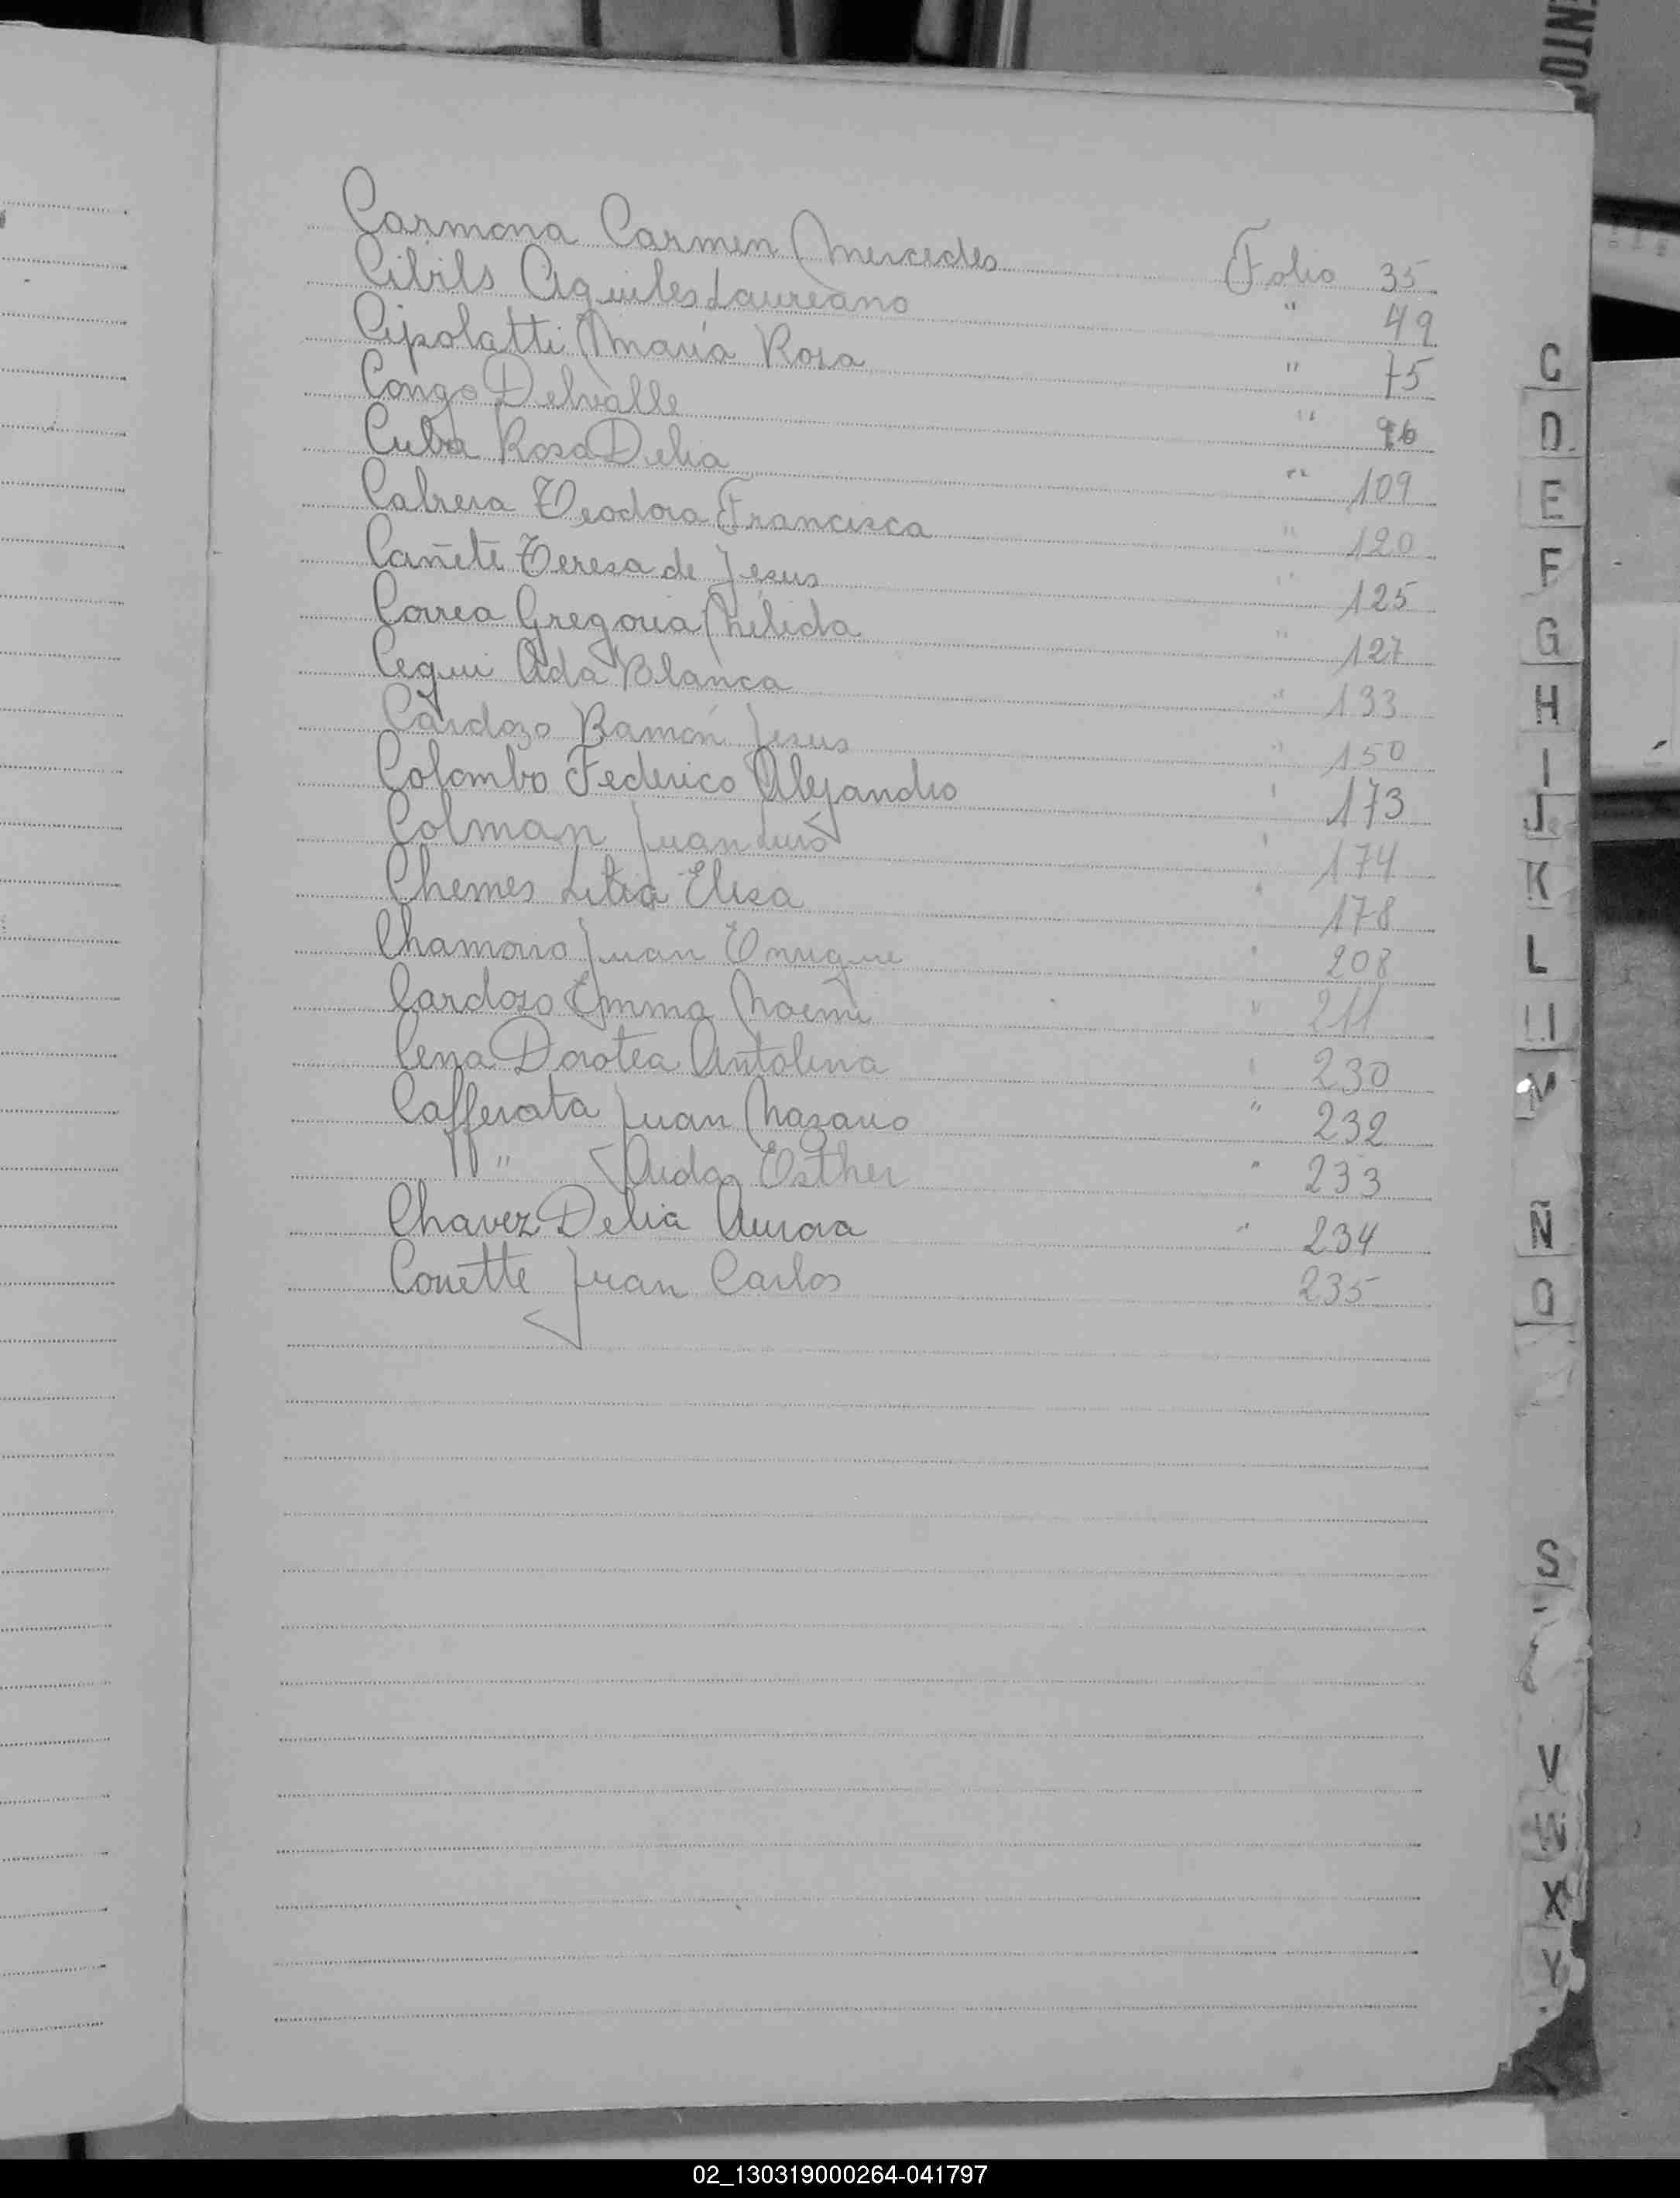 ENTO
Carmona Carmen Mercedes Folio 35
Cibils Aquiles Laureano " 49
Cipolatti María Rosa " 75
Congo Delvalle " 96
Cuba Rosa Delia " 109
Cabrera Teodora Francisca " 120
Cañete Teresa de Jesus " 125
Correa Gregoria Nélida " 127
Cequi Ada Blanca " 133
Cardozo Ramón Jesus " 150
Colombo Federico Alejandro " 173
Colman Juan Luis " 174
Chemes Lilia Elisa " 178
Chamorro Juan Enrique " 208
Cardozo Emma Noemi " 211
Cena Dorotea Antolina " 230
Cafferata Juan Nazario " 232
" Aida Esther " 233
Chavez Delia Aurora " 234
Conette Juan Carlos 235
C
D
E
F
G
H
I
J
K
L
N
Ñ
O
S
V
W
X
Y
02_130319000264-041797